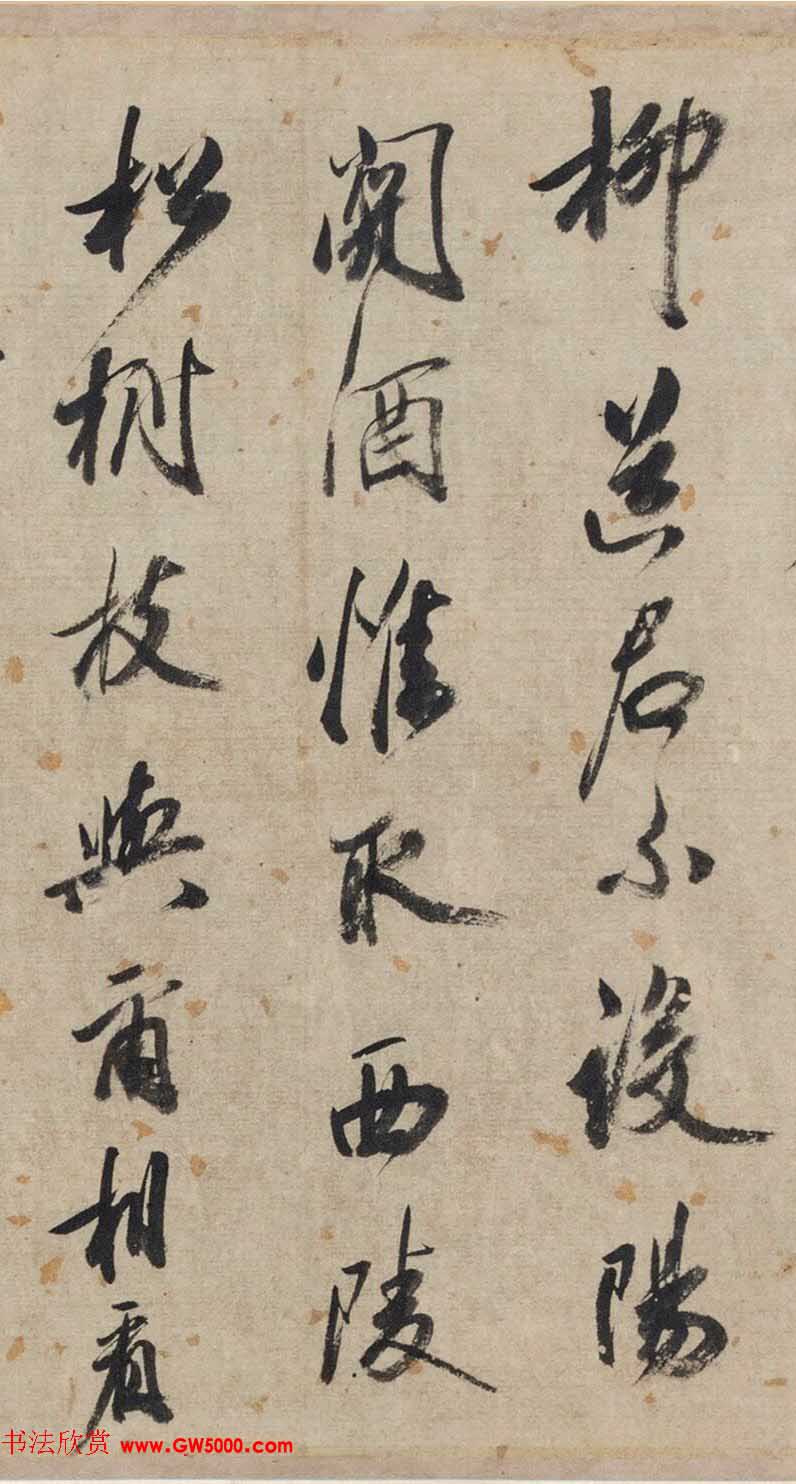 柳送君不設陽
關酒惟取西陵
松樹枝與爾相看
书法欣赏 www.GW5000.com